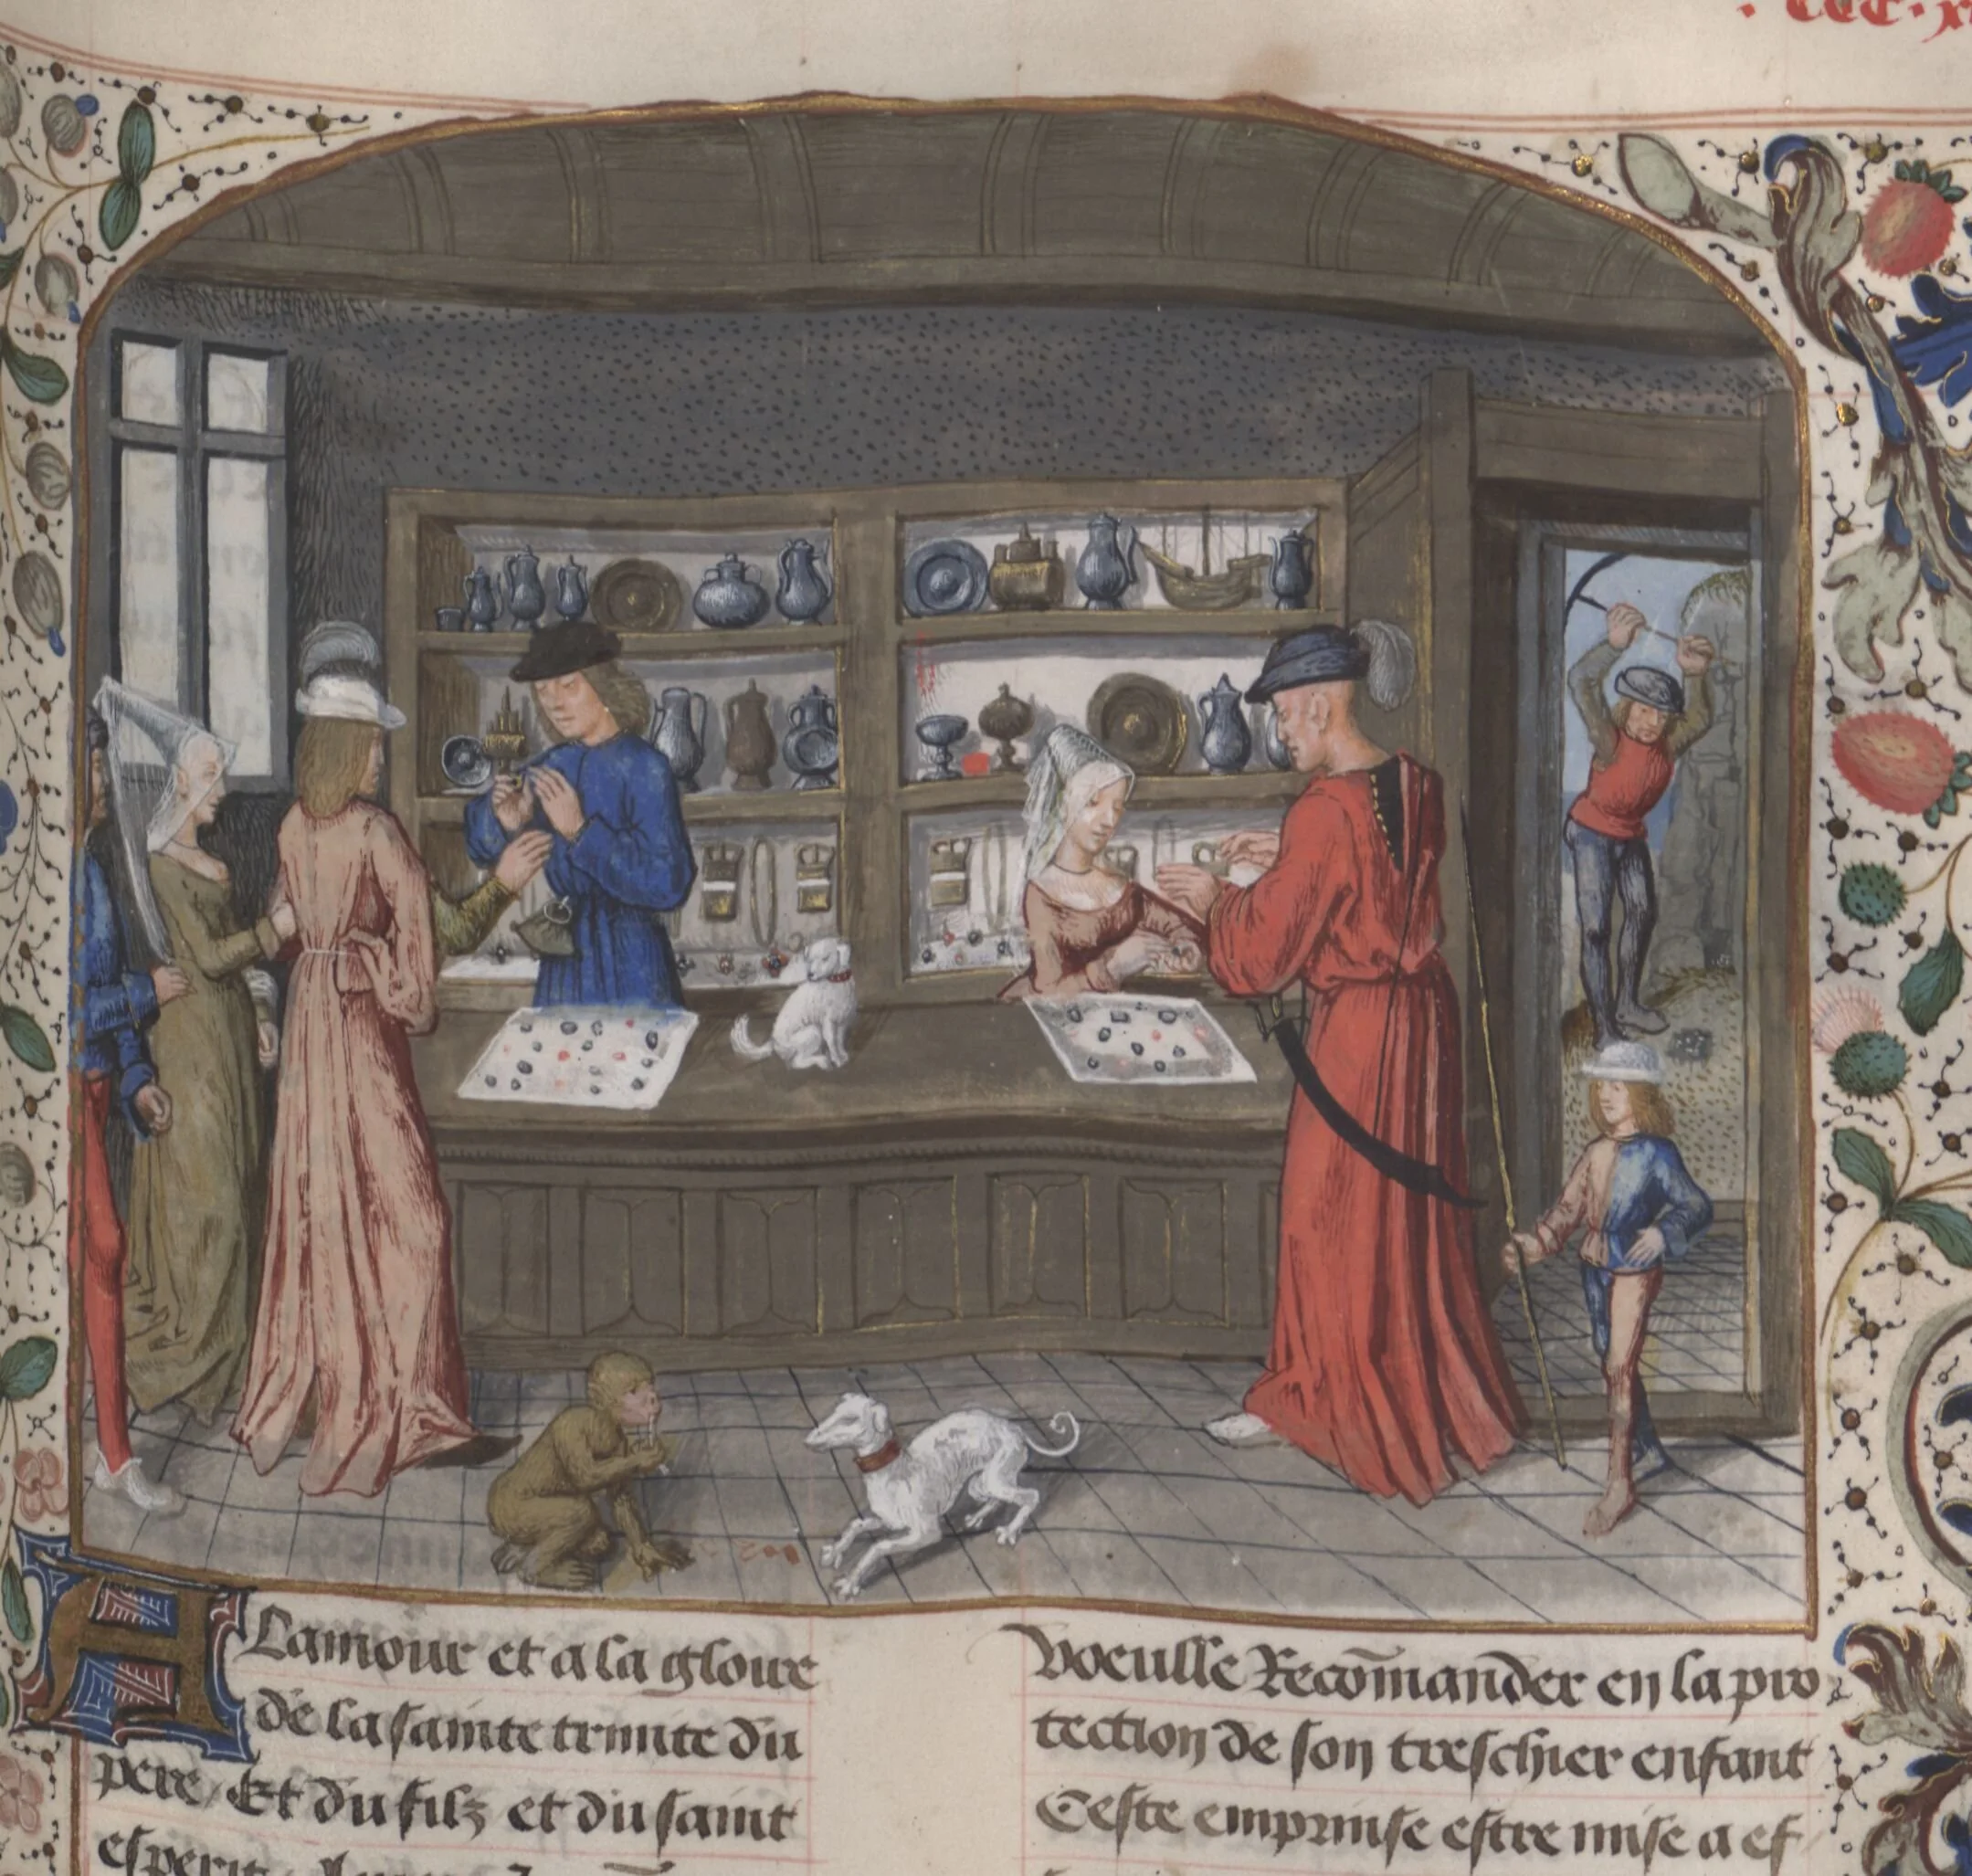 CCC
A Lamour et a la gloire
de la sainte trinite du
pere, Et du filz et du saint
esperit
voeulle Recōmander en la pro
tection de son treschier enfant
Ceste emprinse estre mise a ef